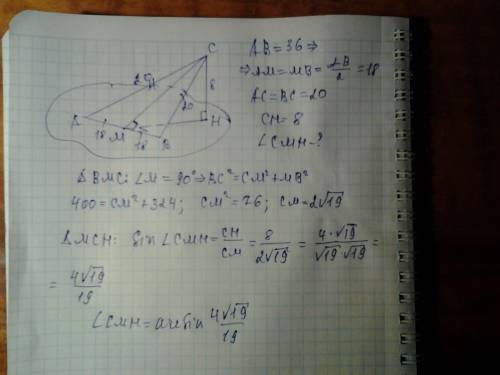 C
20
8
20
A
18
M
18
B
H
AB = 36 ⇒
⇒ AM = MB = AB/2 = 18
AC = BC = 20
CH = 8
∠CMH - ?
Δ BMC: ∠M = 90° ⇒ BC² = CM² + MB²
400 = CM² + 324; CM² = 76; CM = 2√19
Δ MCH: Sin ∠CMH = CH/CM = 8/2√19 = 4·√19/√19·√19 =
= 4√19/19
∠CMH = arcsin 4√19/19